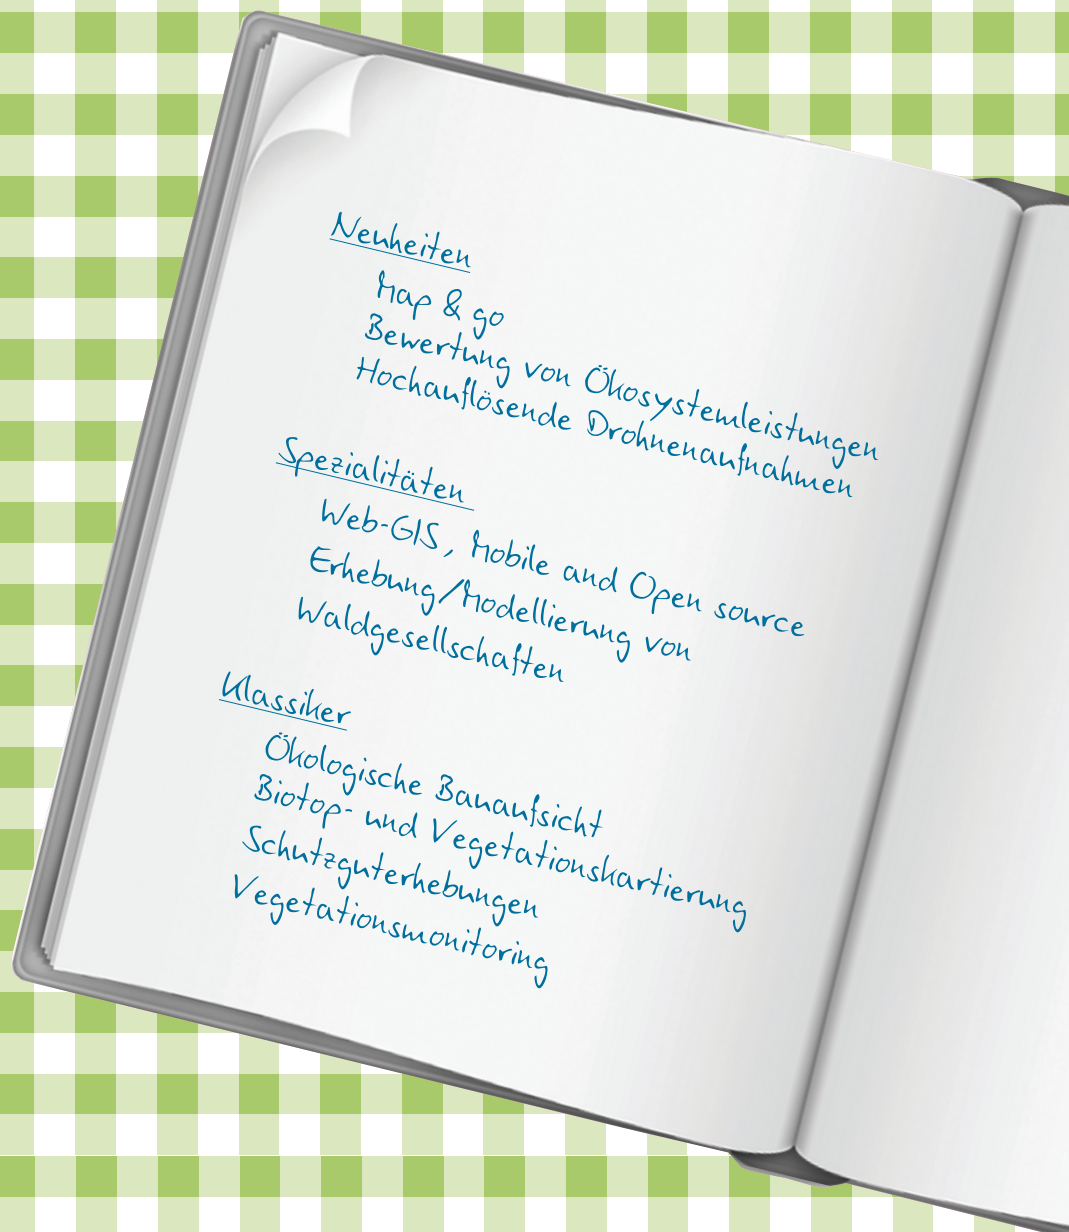 Neuheiten
Map & go
Bewertung von Ökosystemleistungen
Hochauflösende Drohnenaufnahmen
Spezialitäten
Web-GIS, Mobile and Open source
Erhebung/Modellierung von
Waldgesellschaften
Klassiker
Ökologische Bauaufsicht
Biotop- und Vegetationskartierung
Schutzguterhebungen
Vegetationsmonitoring